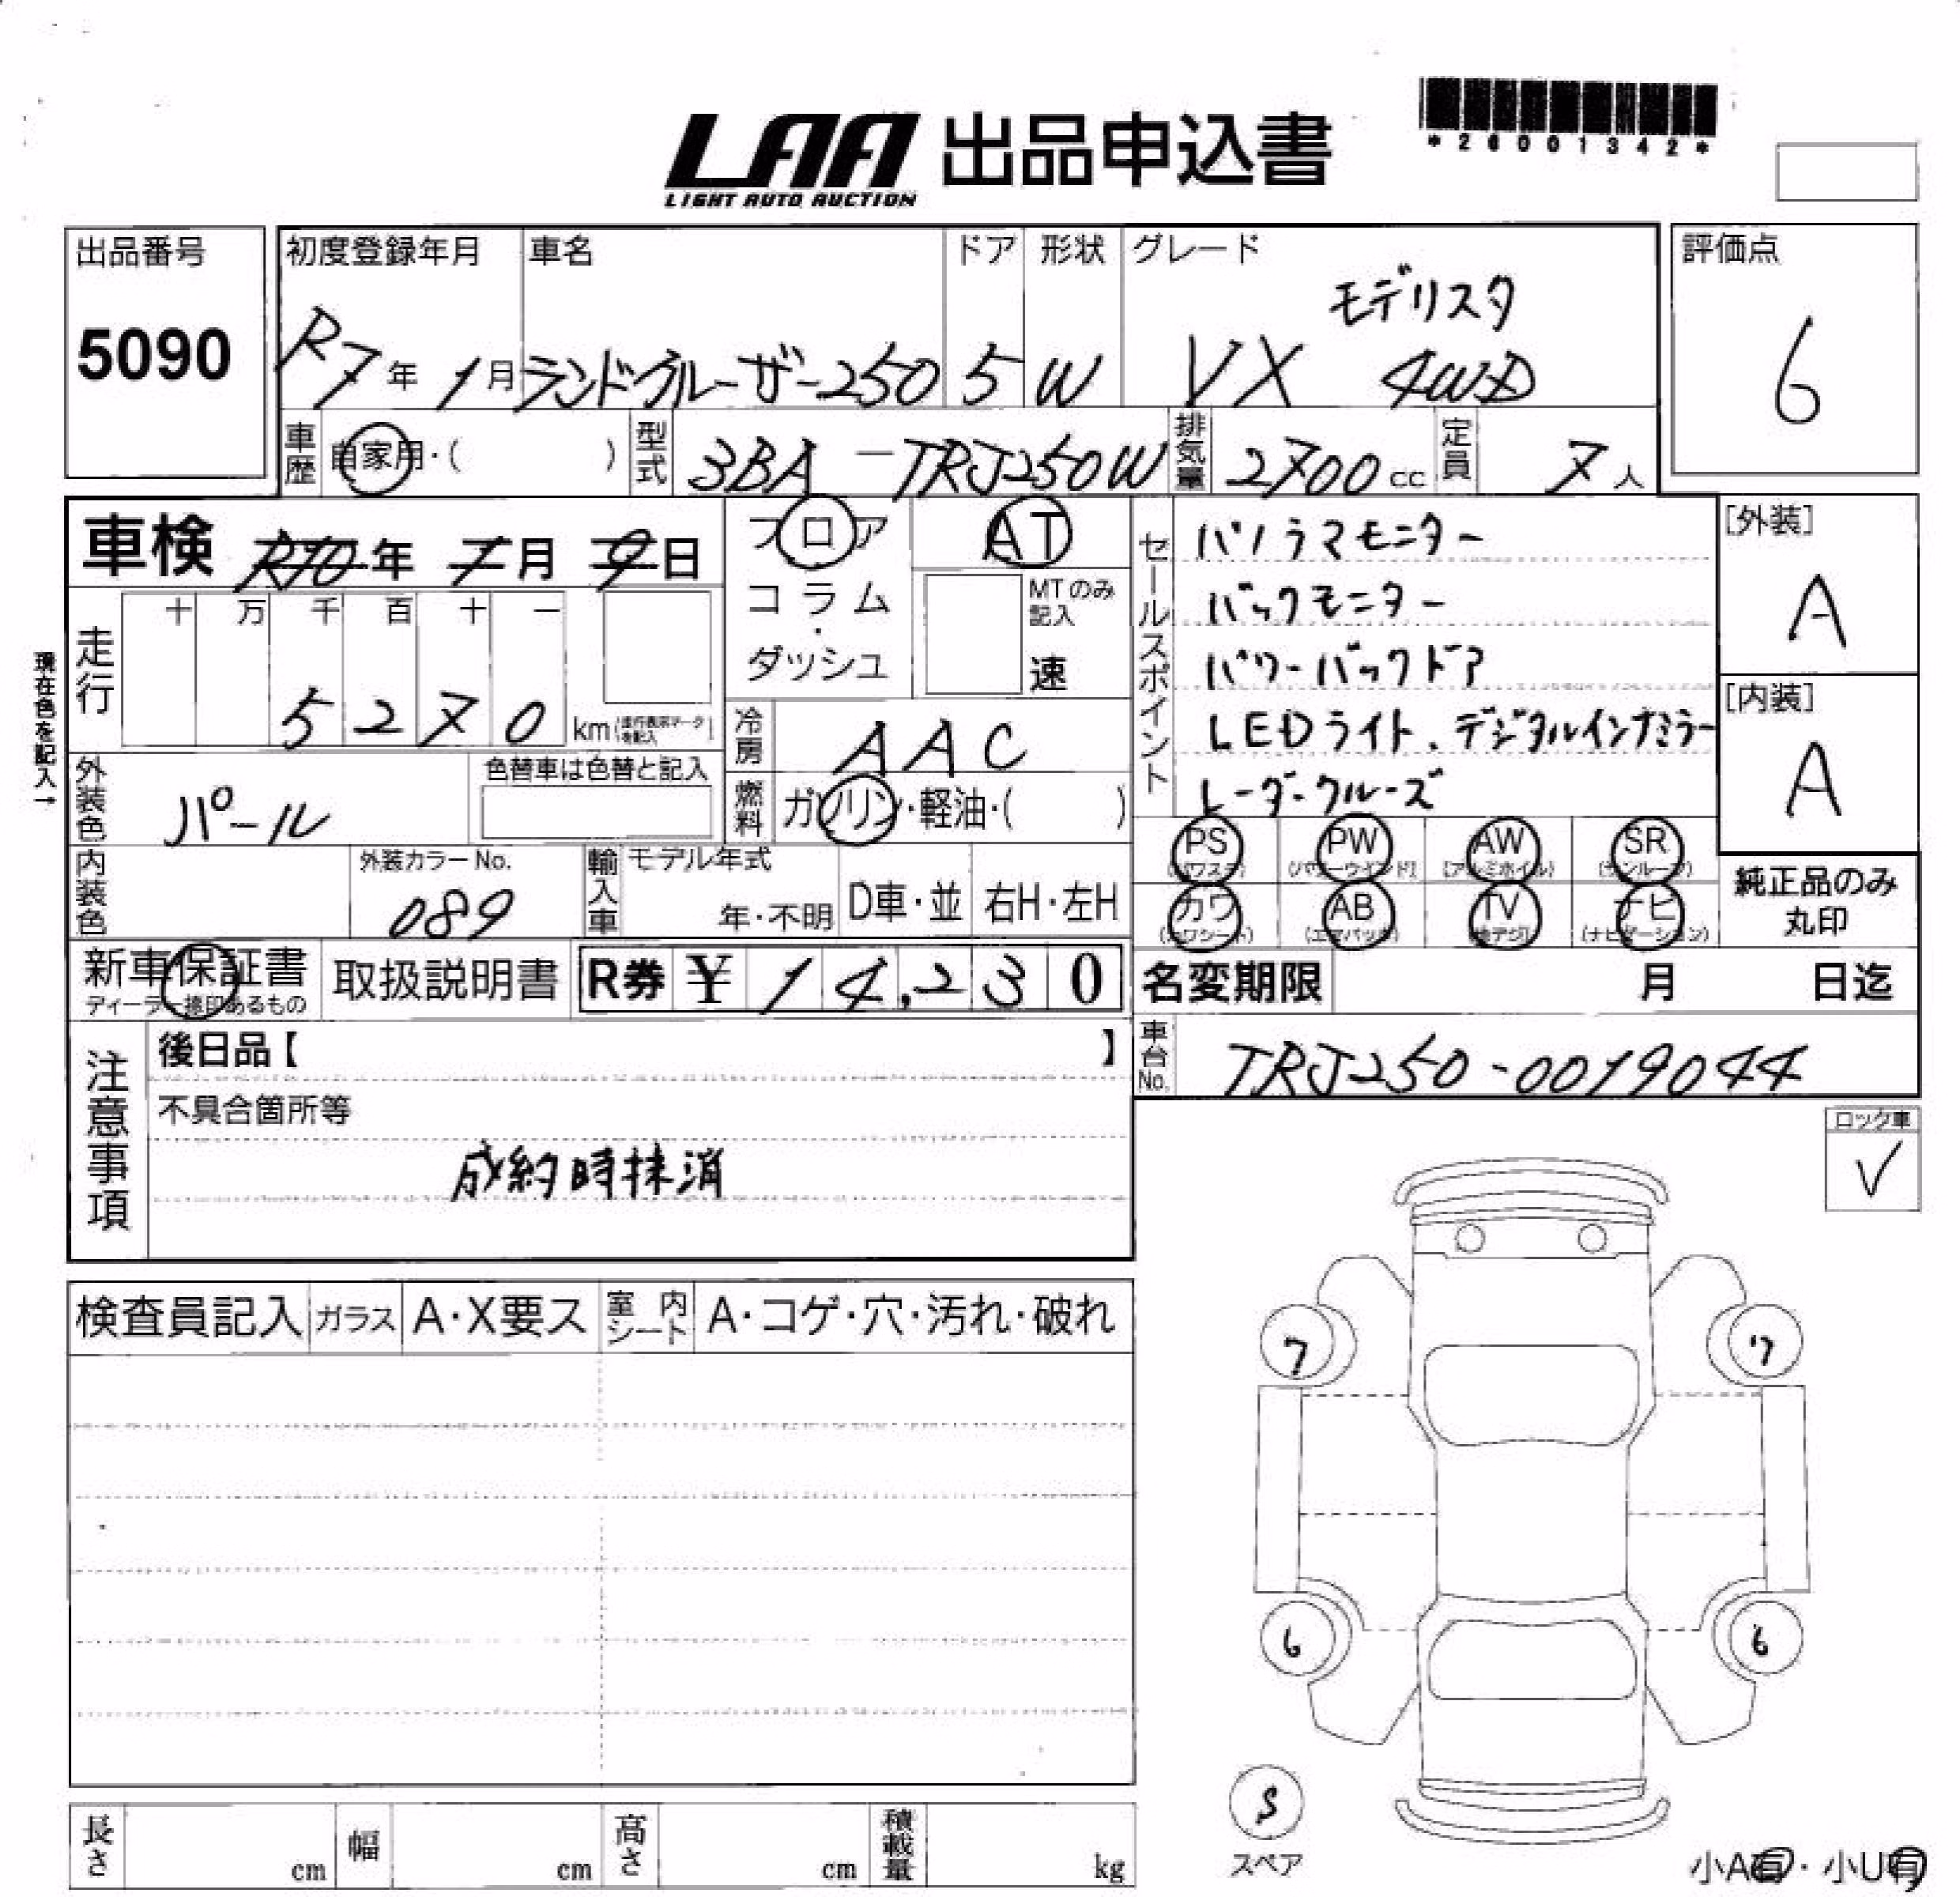 LAA 出品申込書
LIGHT AUTO AUCTION
*26001342*
出品番号
5090
初度登録年月
R7年 1月
車名
ランドクルーザー250
ドア
5
形状
W
グレード
モデリスタ
VX 4WD
評価点
6
車歴 自家用・( )
型式 3BA-TRJ250W
排気量 2700cc
定員 7人
車検 R10年 1月 9日
フロア
コラム・ダッシュ
AT
MTのみ記入
速
セールスポイント
パノラマモニター
バックモニター
パワーバックドア
LEDライト、デジタルインナミラー
レーダークルーズ
[外装]
A
[内装]
A
現在色を記入→
走行
十 万 千 百 十 一
5270 km
(走行表示マークを記入)
冷房 AAC
燃料 ガソリン・軽油・( )
外装色 パール
色替車は色替と記入
内装色
外装カラーNo.
089
輸入車
モデル年式
年・不明
D車・並
右H・左H
PS (パワステ)
PW (パワーウインド)
AW (アルミホイル)
SR (サンルーフ)
カワ (カワシート)
AB (エアバック)
TV (地デジ)
ナビ (ナビゲーション)
純正品のみ丸印
新車保証書
ディーラー捺印あるもの
取扱説明書
R券 ¥14,230
名変期限 月 日迄
車台No. TRJ250-0019044
注意事項
後日品【 】
不具合箇所等
成約時抹消
ロック車
✓
検査員記入
ガラス A・X要ス
室内シート A・コゲ・穴・汚れ・破れ
7 7
6 6
S
スペア
長さ cm
幅 cm
高さ cm
積載量 kg
小A有・小U有